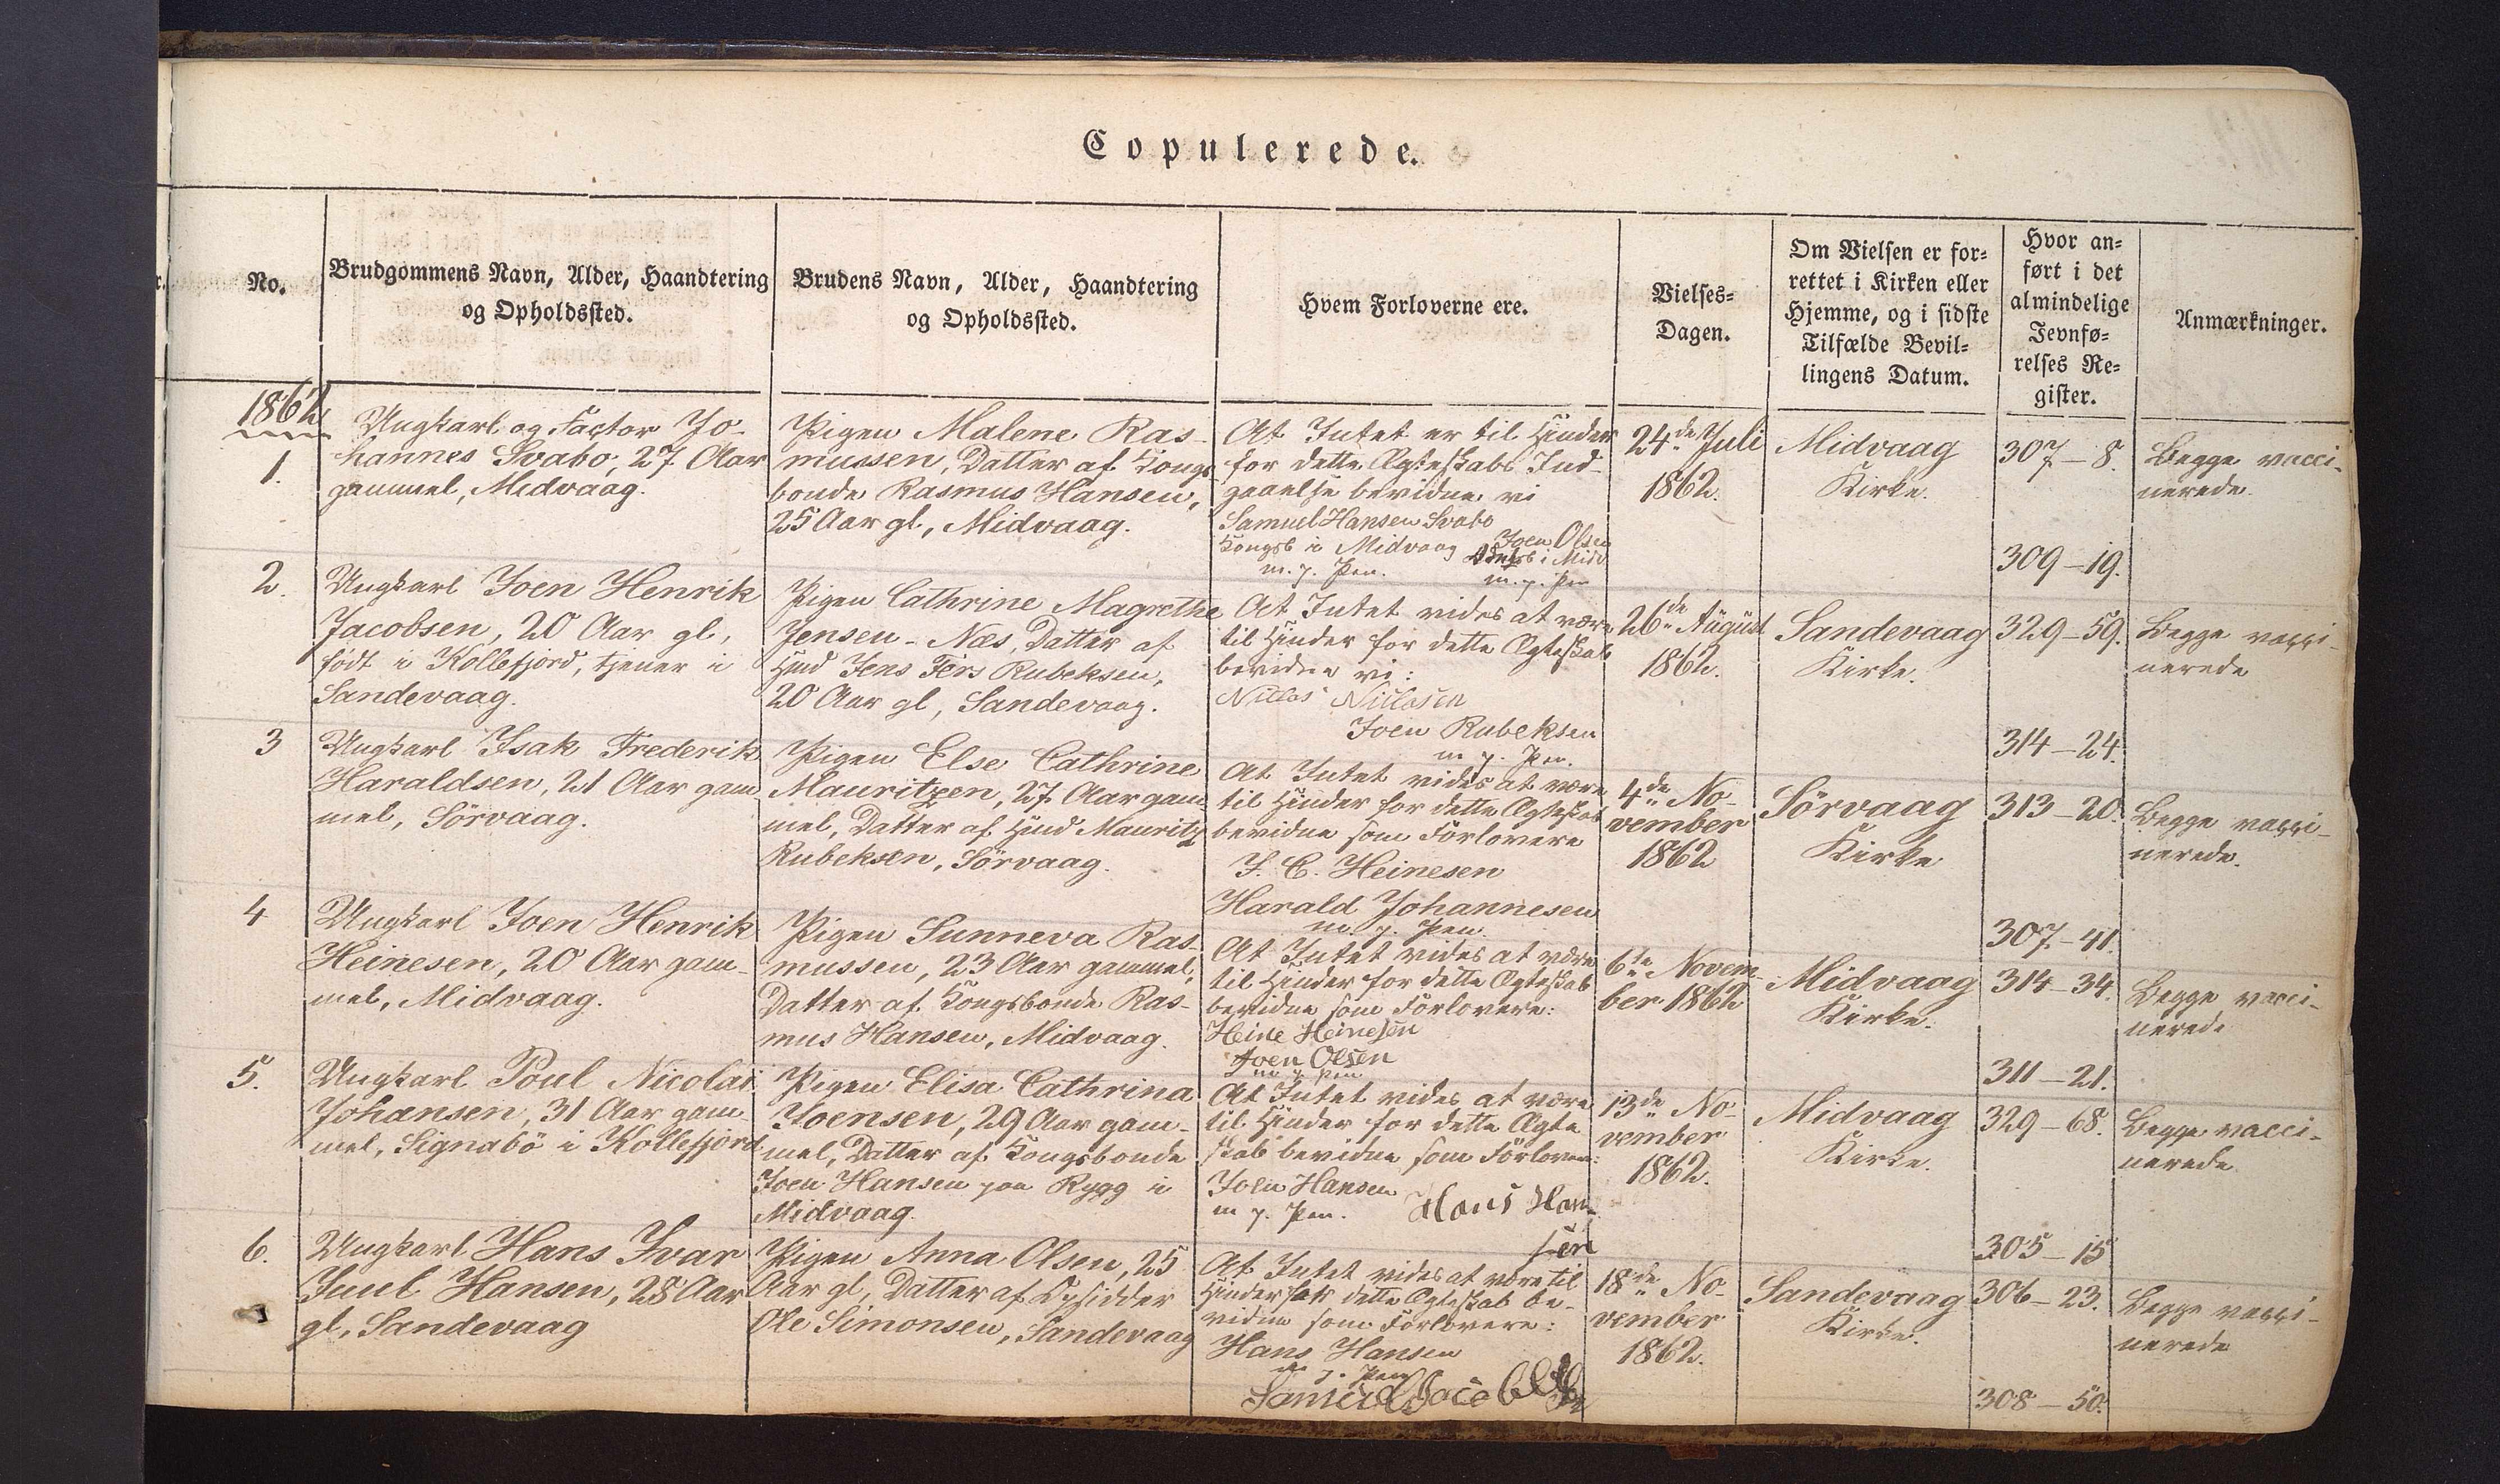 Copulerede.
No.
Brudgommens Navn, Alder, Haandtering
og Opholdssted.
Brudens Navn, Alder, Haandtering
og Opholdssted.
Hvem Forloverne ere.
Vielses-
Dagen.
Om Vielsen er for-
rettet i Kirken eller
Hjemme, og i sidste
Tilfælde Bevil-
lingens Datum.
Hvor an-
ført i det
almindelige
Jevnfø-
relses Re-
gister.
Anmærkninger.
1862
1.
Ungkarl og Factor Jo-
hannes Svabo, 27 Aar
gammel, Midvaag.
Pigen Malene Ras-
mussen, Datter af Kongs
bonde Rasmus Hansen,
25 Aar gl., Midvaag.
At Intet er til Hinder
for dette Ægteskabs Ind-
gaaelse bevidne vi
Samuel Hansen Svabo
Kongsb i Midvaag
m. p. Pen.
Joen Olsen
i Midv
m. p. Pen
24de Juli
1862.
Midvaag
Kirke.
307-8.
309-19.
Begge vacci-
nerede.
2.
Ungkarl Joen Henrik
Jacobsen, 20 Aar gl.,
født i Kollefjord, tjener i
Sandevaag.
Pigen Cathrine Magrethe
Jensen-Næs, Datter af
Hmd Jens Fers Rubeksen,
20 Aar gl, Sandevaag.
At Intet vides at være
til Hinder for dette Ægteskab
bevidne vi:
Niclas Niclasen
Joen Rubeksen
m p. Pen.
26de August
1862.
Sandevaag
Kirke.
329-59.
314-24.
Begge vacci-
nerede
3
Ungkarl Isak Frederik
Haraldsen, 21 Aar gam
mel, Sörvaag.
Pigen Else Cathrine
Mauritzen, 27 Aar gam
mel, Datter af Hmd Mauritz
Rubeksen, Sörvaag.
At Intet vides at være
til Hinder for dette Ægteskab
bevidne som Forlovere
J. C. Heinesen
Harald Johannesen
m. p. Pen.
4de No-
vember
1862
Sörvaag
Kirke
313-20.
307-41.
Begge vacci-
nerede.
4
Ungkarl Joen Henrik
Heinesen, 20 Aar gam-
mel, Midvaag.
Pigen Sunneva Ras-
mussen, 23 Aar gammel,
Datter af Kongsbonde Ras-
mus Hansen, Midvaag.
At Intet vides at være
til Hinder for dette Ægteskab
bevidne som Forlovere:
Heine Heinesen
Joen Olsen
m p Pen
6te Novem-
ber 1862
Midvaag
Kirke.
314-34.
311-21.
Begge vacci-
nerede
5.
Ungkarl Poul Nicolai
Johansen, 31 Aar gam
mel, Signabö i Kollefjord
Pigen Elisa Cathrina
Joensen, 29 Aar gam-
mel, Datter af Kongsbonde
Joen Hansen paa Rygg i
Midvaag.
At Intet vides at være
til Hinder for dette Ægte
skab bevidne som Forlovere:
Joen Hansen
m p. Pen.
Hans Han-
sen
13de No-
vember
1862.
Midvaag
Kirke.
329-68.
305-15
Begge vacci-
nerede
6.
Ungkarl Hans Ivar
Juul Hansen, 28 Aar
gl., Sandevaag
Pigen Anna Olsen, 25
Aar gl, Datter af Opsidder
Ole Simonsen, Sandevaag
At Intet vides at være til
Hinder for dette Ægteskab be-
vidne som Forlovere:
Hans Hansen
m p. Pen
18de No-
vember
1862.
Sandevaag
Kirke.
306-23.
308-50.
Begge vacci-
nerede